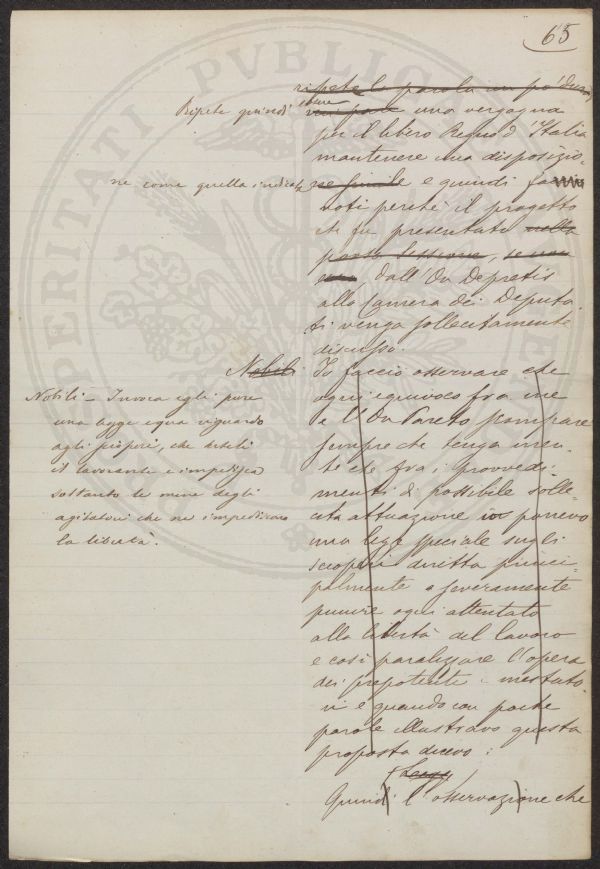 65
ripete la parola un po' dura
Ripete quindi essere una vergogna
per il libero Regno d'Italia
mantenere una disposizio
ne come quella indicata e quindi fa
voti perchè il progetto
che fu presentato nella
dall'On Depretis
alla Camera dei Deputa
ti venga sollecitamente
discusso.
Nobili Io faccio osservare che
ogni equivoco fra me
e l'On Pareto scompare
sempre che tenga men-
te che fra i provvedi-
menti di possibile solle-
cita attuazione io ponevo
una legge speciale sugli
scioperi diretta princi-
palmente a severamente
punire ogni attentato
alla libertà del lavoro
e così paralizzare l'opera
dei prepotenti e mestato
ri e quando con poche
parole illustravo questa
proposta dicevo:
(Legge)
Quindi l'osservazione che
Nobili - Invoca egli pure
una legge equa riguardo
agli scioperi, che tuteli
il lavorante e impedisca
soltanto le mene degli
agitatori che ne impediscano
la libertà.
PROSPERITATI PVBLICAE